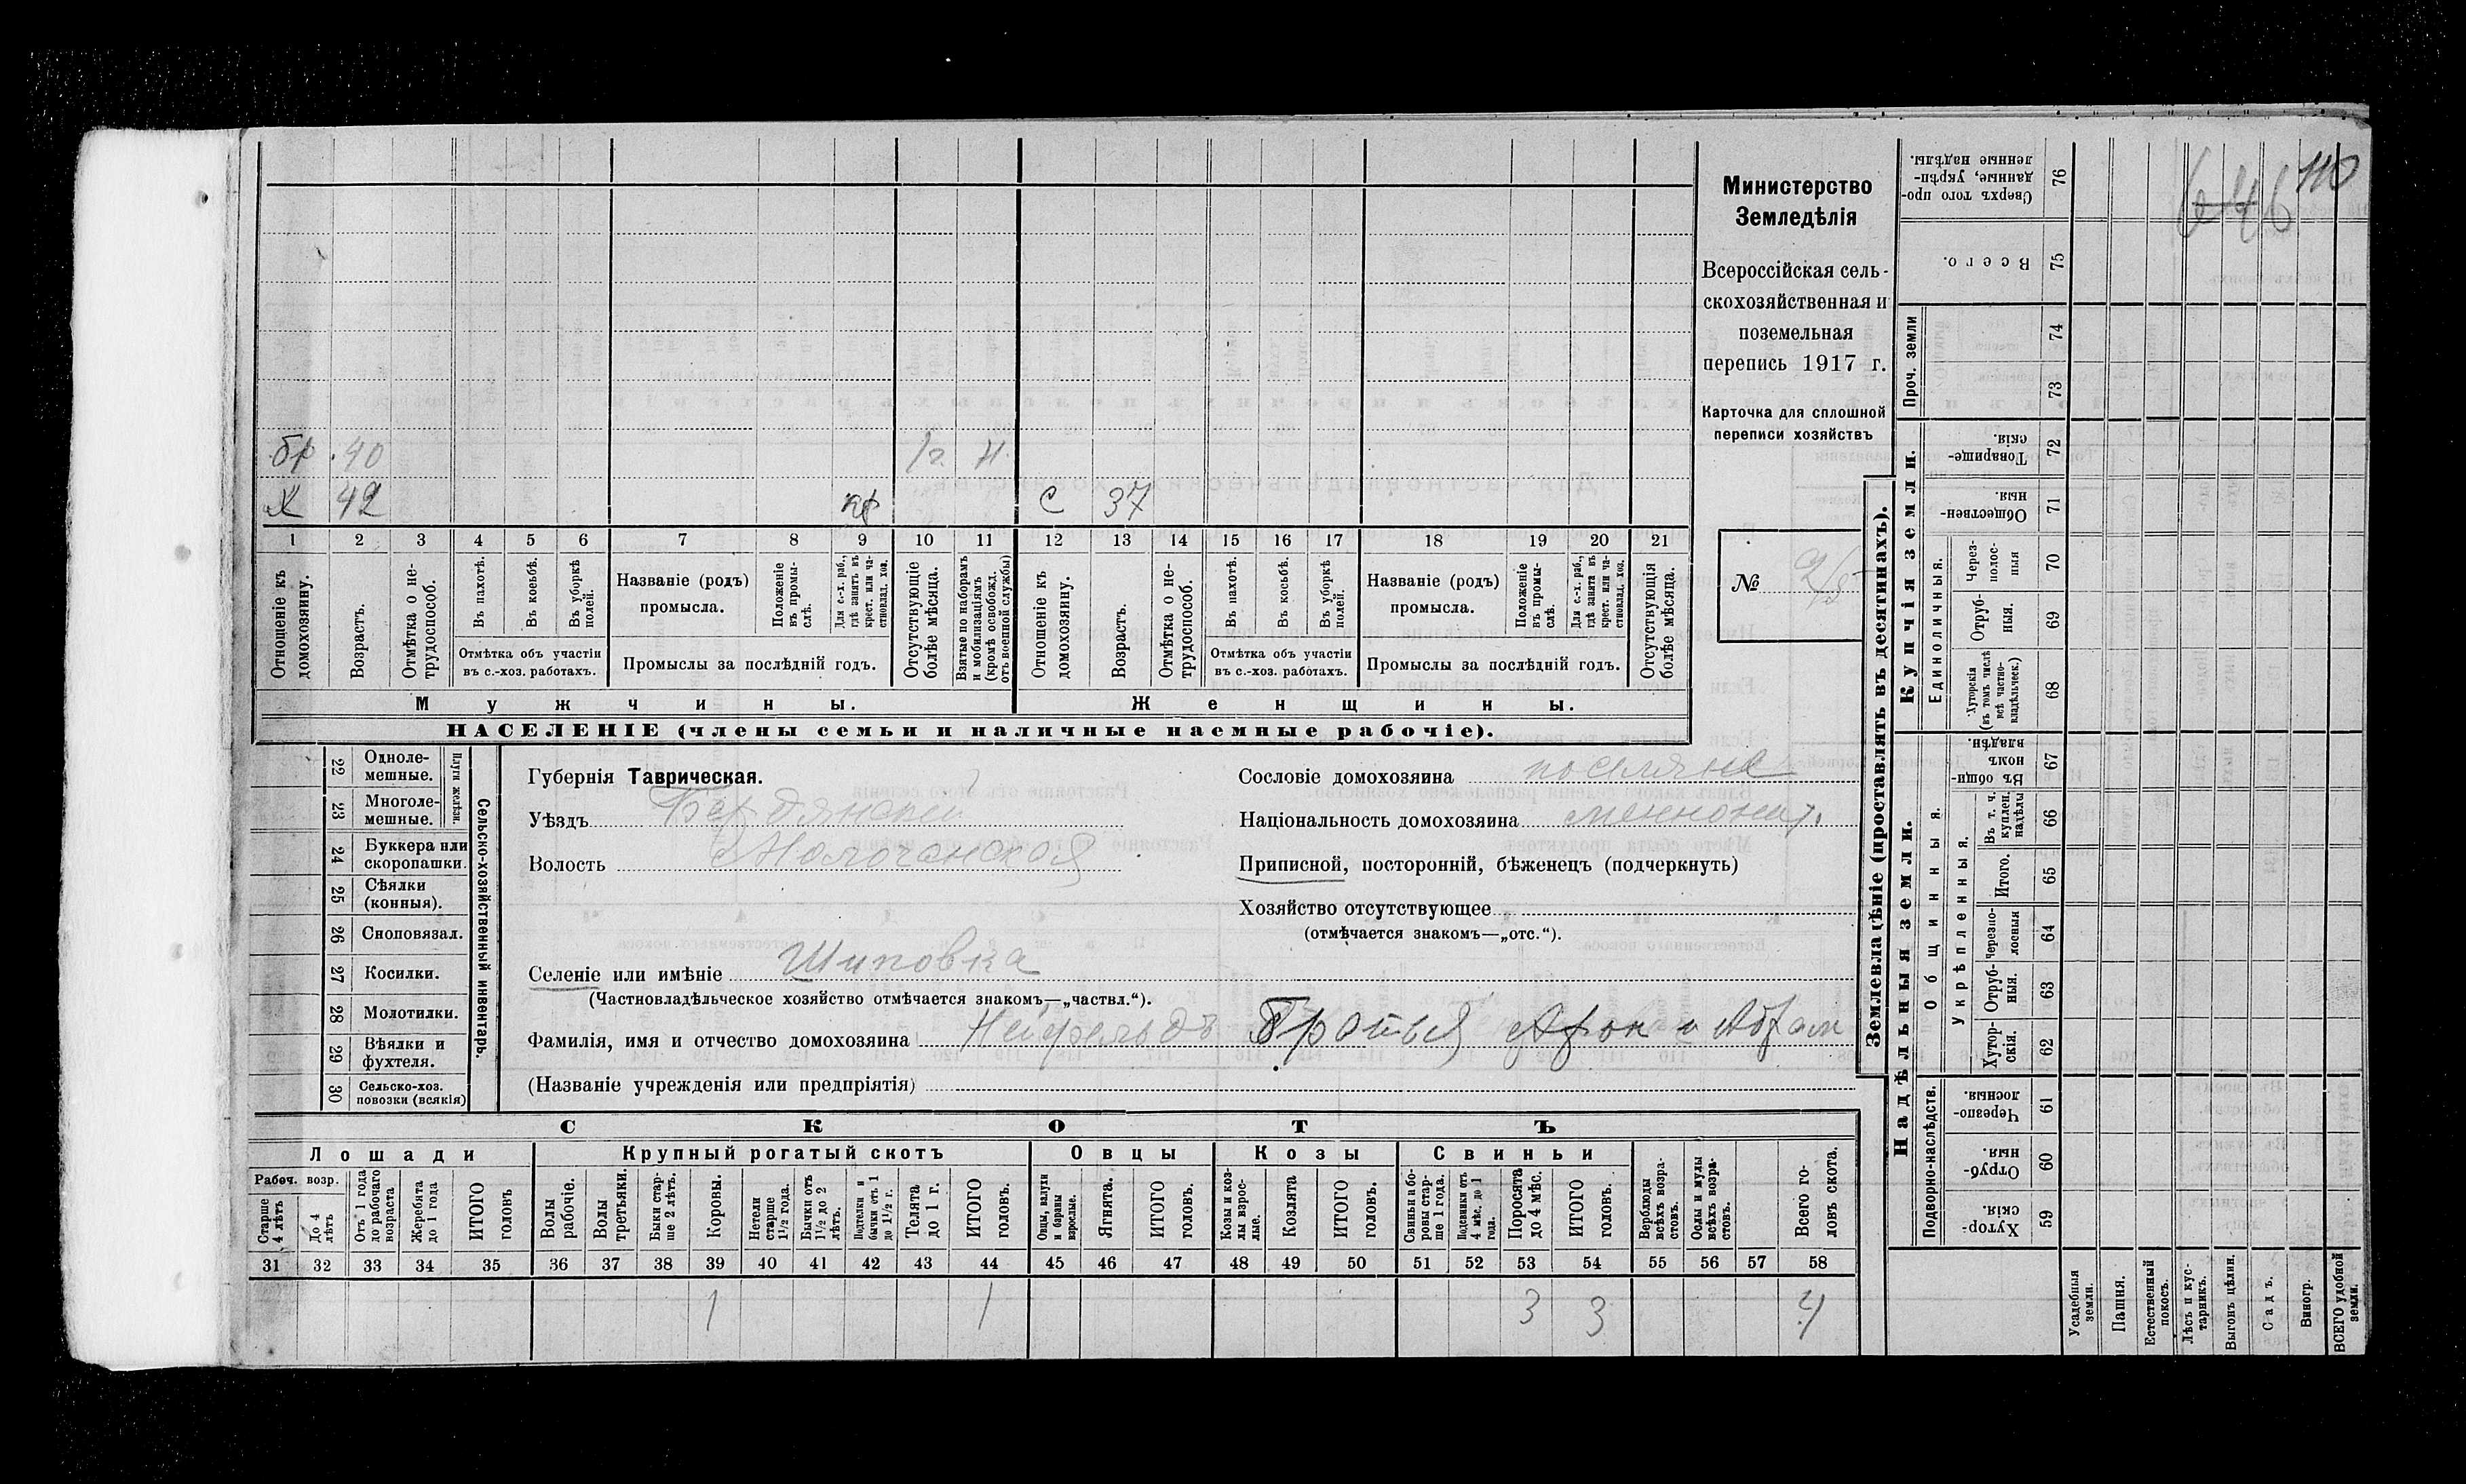 110
646
бр. 40 1 г. Н.
Х 42 кр С 37
1 2 3 4 5 6 7 8 9 10 11 12 13 14 15 16 17 18 19 20 21
Отношеніе къ домохозяину.
Возрастъ.
Отмѣтка о не-трудоспособ.
Въ пахотѣ.
Въ косьбѣ.
Въ уборкѣ полей.
Отмѣтка объ участіи
въ с.-хоз. работахъ.
Названіе (родъ)
промысла.
Положеніе въ промы-слѣ.
Для с.-х. раб., гдѣ занятъ въ крест. или ча-стновлад. хоз.
Промыслы за послѣдній годъ.
Отсутствующіе болѣе мѣсяца.
Взятые по наборамъ и мобилизаціямъ (кромѣ освобожд. отъ военной службы)
Отношеніе къ домохозяину.
Возрастъ.
Отмѣтка о не-трудоспособ.
Въ пахотѣ.
Въ косьбѣ.
Въ уборкѣ полей.
Отмѣтка объ участіи
въ с.-хоз. работахъ.
Названіе (родъ)
промысла.
Положеніе въ промы-слѣ.
Для с.-х. раб., гдѣ занята въ крест. или ча-стновлад. хоз.
Промыслы за послѣдній годъ.
Отсутствующія болѣе мѣсяца.
Мужчины. Женщины.
НАСЕЛЕНІЕ (члены семьи и наличные наемные рабочіе).
Министерство
Земледѣлія
Всероссійская сель-
скохозяйственная и
поземельная
перепись 1917 г.
Карточка для сплошной
переписи хозяйствъ
№
22 Одноле-мешные.
23 Многоле-мешные.
Плуги желѣзн.
24 Буккера или скоропашки.
25 Сѣялки (конныя).
26 Сноповязал.
27 Косилки.
28 Молотилки.
29 Вѣялки и фухтеля.
30 Сельско-хоз. повозки (всякія)
Сельско-хозяйственный инвентарь.
Губернія Таврическая.
Уѣздъ Бердянский
Волость Молочанская
Селеніе или имѣніе Шиповка
(Частновладѣльческое хозяйство отмѣчается знакомъ—„частвл.“).
Фамилія, имя и отчество домохозяина Нейфельдъ Братья Арон и Абрам
(Названіе учрежденія или предпріятія)
Сословіе домохозяина поселяне
Національность домохозяина меннонит.
Приписной, посторонній, бѣженецъ (подчеркнуть)
Хозяйство отсутствующее
(отмѣчается знакомъ—„отс.“).
СКОТЪ
Лошади Крупный рогатый скотъ Овцы Козы Свиньи
Рабоч. возр.
Старше 4 лѣтъ
До 4 лѣтъ
Отъ 1 года до рабочаго возраста
Жеребята до 1 года
ИТОГО головъ
Волы рабочіе.
Волы третьяки.
Быки стар-ше 2 лѣтъ.
Коровы.
Нетели старше 1½ года.
Бычки отъ 1½ до 2 лѣтъ.
Подтелки и бычки отъ 1 до 1½ г.
Телята до 1 г.
ИТОГО головъ.
Овцы, валухи и бараны взрослые.
Ягнята.
ИТОГО головъ.
Козы и коз-лы взрос-лые.
Козлята
ИТОГО головъ.
Свиньи и бо-ровы стар-ше 1 года.
Подсвинки отъ 4 мѣс. до 1 года.
Поросята до 4 мѣс.
ИТОГО головъ.
Верблюды всѣхъ возра-стовъ.
Ослы и мулы всѣхъ возра-стовъ.
Всего го-ловъ скота.
31 32 33 34 35 36 37 38 39 40 41 42 43 44 45 46 47 48 49 50 51 52 53 54 55 56 57 58
1 1 3 3 4
Землевладѣніе (проставлять въ десятинахъ).
Сверхъ того про-данные, укрѣп-ленные надѣлы. 76
Всего. 75
Проч. земли 74 73
Купчія земли.
Товарище-скія. 72
Обществен-ныя. 71
Единоличныя.
Через-полос-ныя 70
Отруб-ныя. 69
Хуторскія (въ томъ числѣ всѣ частно-владѣльческ.) 68
Надѣльныя земли.
Общинныя.
Въ общи-номъ владѣн. 67
Укрѣпленныя.
Въ т. ч. куплен. надѣлы 66
Итого. 65
Черезпо-лосныя 64
Отруб-ныя. 63
Хутор-скія. 62
Подворно-наслѣдств.
Черезпо-лосныя. 61
Отруб-ныя. 60
Хутор-скія. 59
Усадебныя земли.
Пашня.
Естественный покосъ.
Лѣсъ и кус-тарникъ.
Выгонъ цѣлин.
Садъ.
Виногр.
ВСЕГО удобной земли.